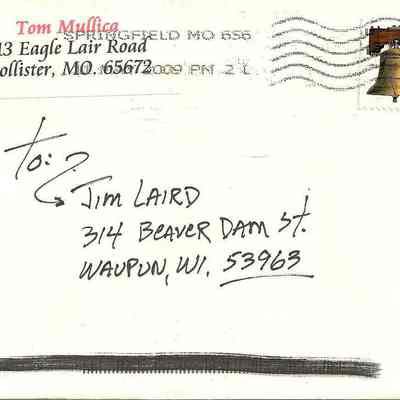 Tom Mullica
13 Eagle Lair Road
ollister, MO. 65672
SPRINGFIELD MO 656
2009 PM 2 L
To: ?
Jim Laird
314 Beaver Dam St.
Waupun, WI. 53963